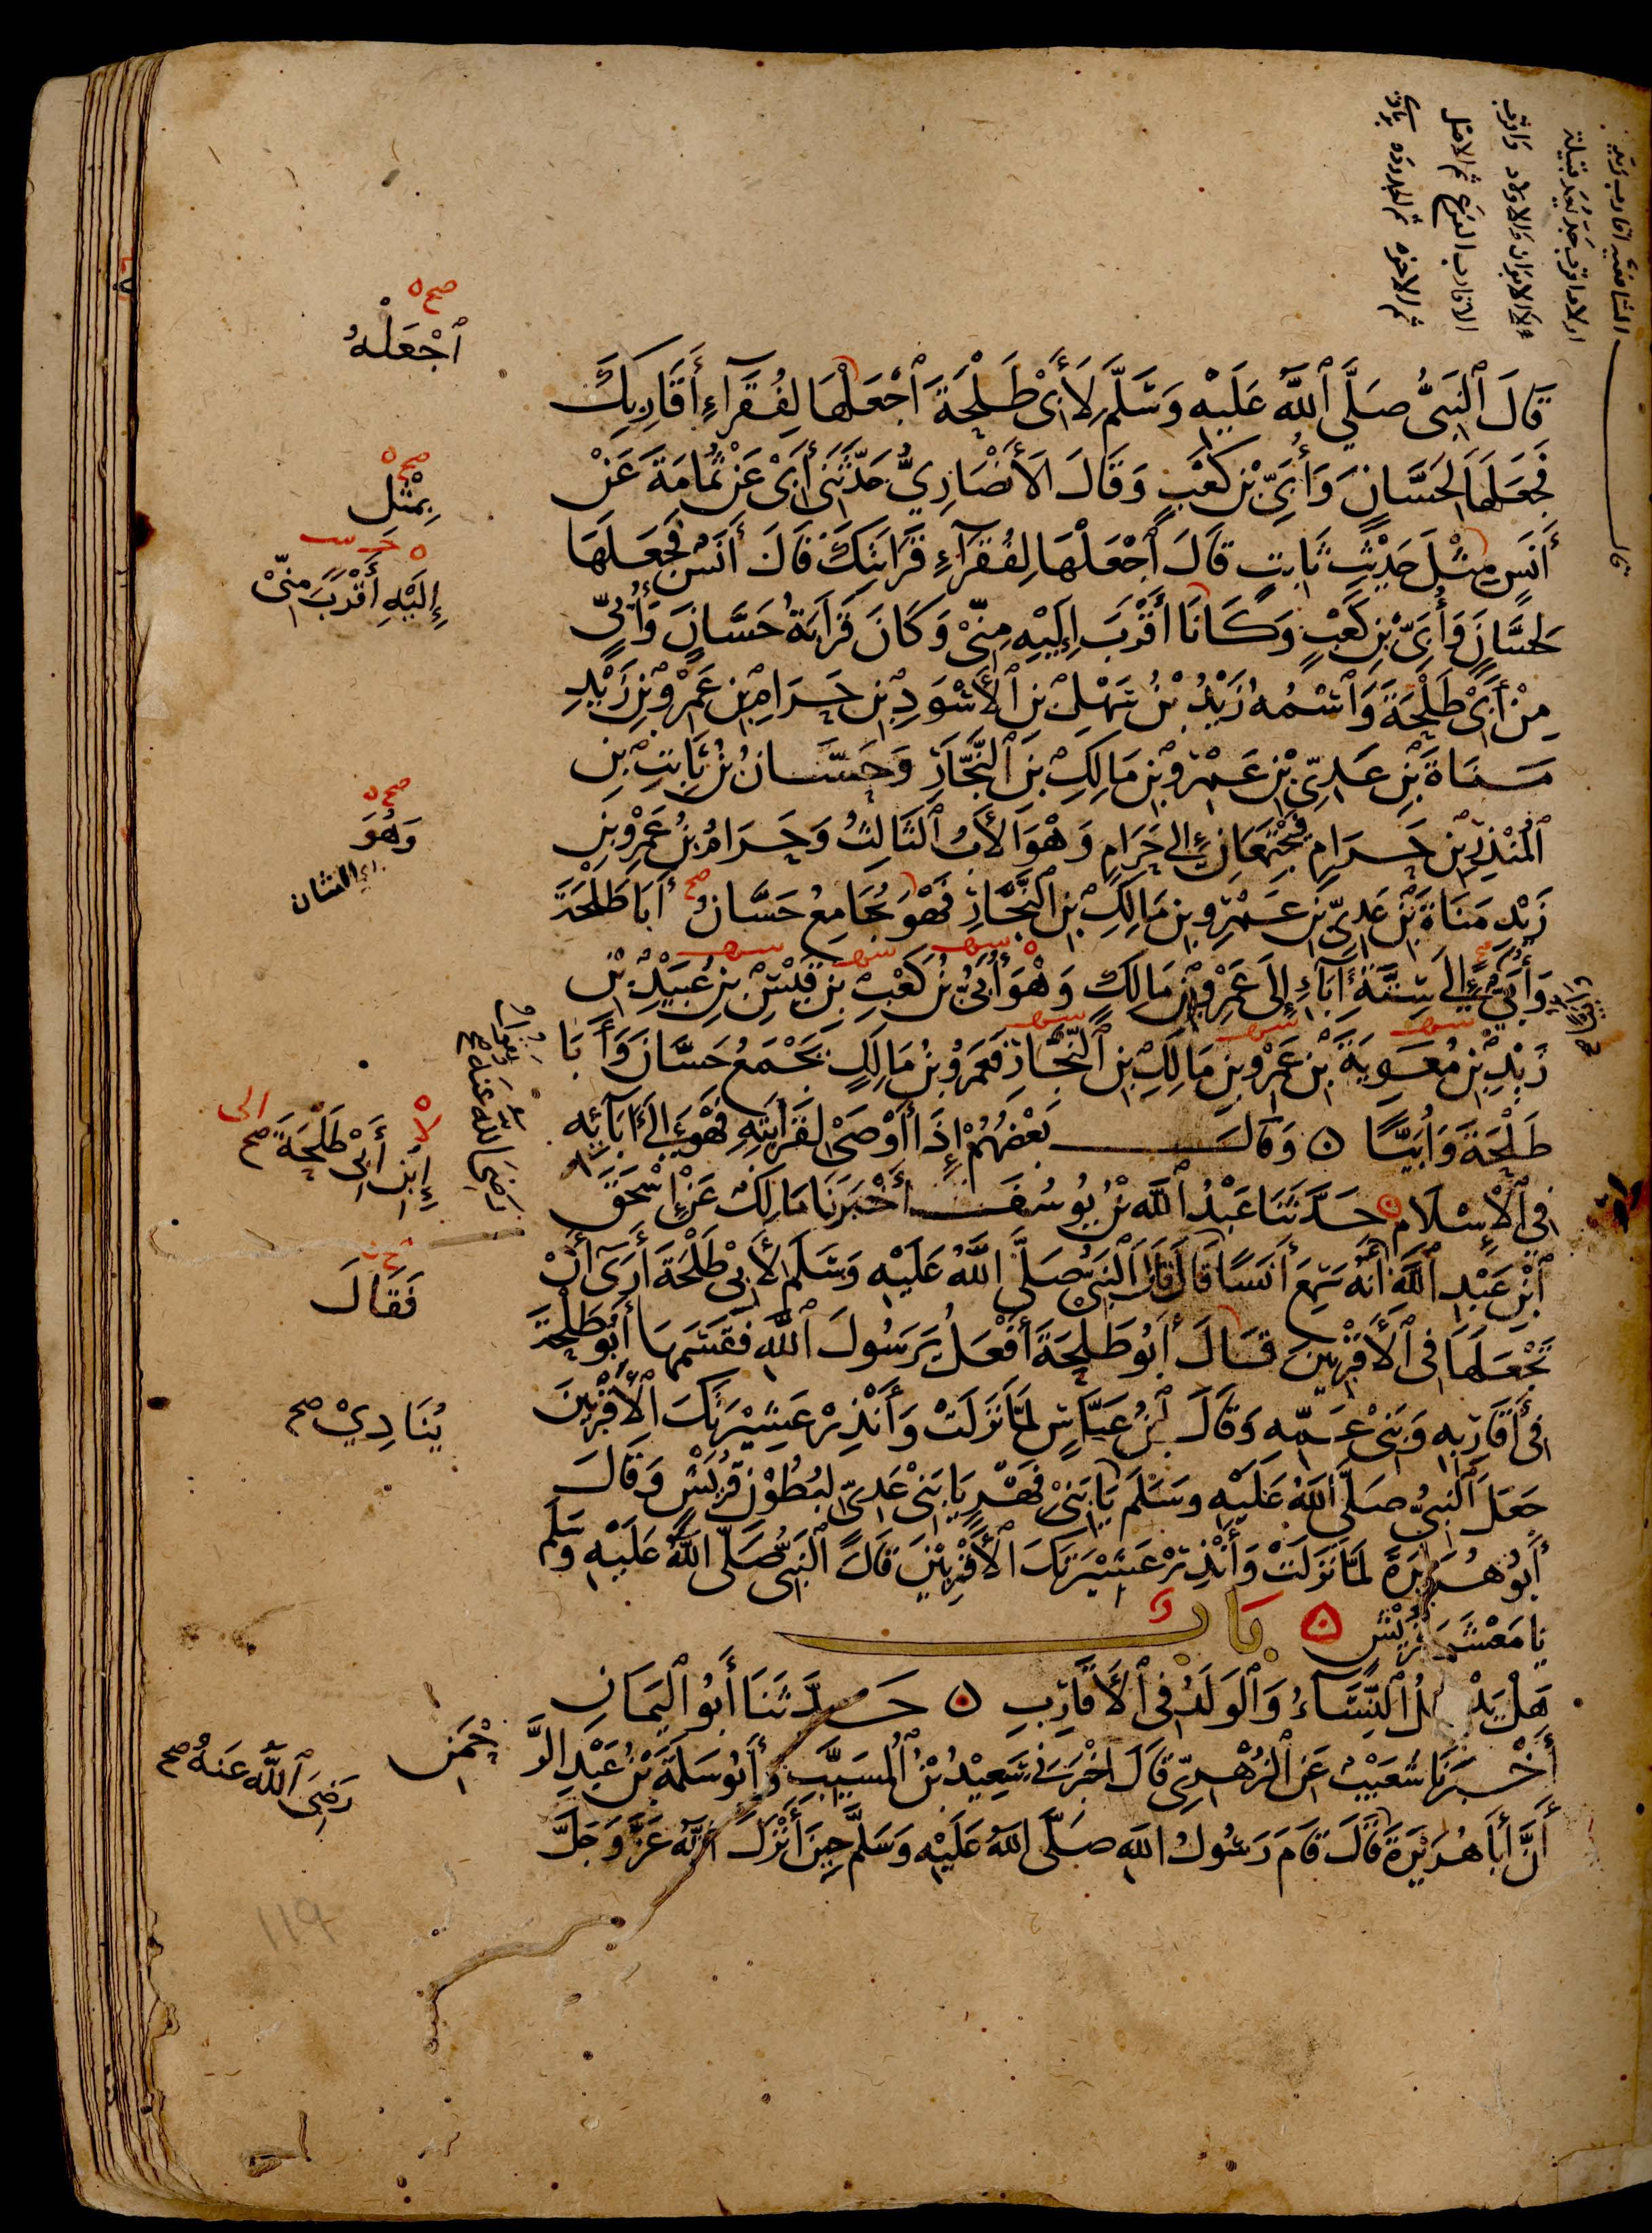 قَالَ ٱلنَّبِىُّ صَلَّى ٱللَّهُ عَلَيْهِ وَسَلَّمَ لِأَبِى طَلْحَةَ ٱجْعَلْهَا لِفُقَرَآءِ أَقَارِبِكَ
فَجَعَلَهَا لِحَسَّانَ وَأُبَىِّ بْنِ كَعْبٍ وَقَالَ الأَنْصَارِىُّ حَدَّثَنِى أَبِى عَنْ ثُمَامَةَ عَنْ
أَنَسٍ مِثْلَ حَدِيْثِ ثَابِتٍ قَالَ ٱجْعَلْهَا لِفُقَرَآءِ قَرَابَتِكَ قَالَ أَنَسٌ فَجَعَلَهَا
لِحَسَّانَ وَأُبَىِّ بْنِ كَعْبٍ وَكَانَا أَقْرَبَ إِلَيْهِ مِنِّىْ وَكَانَ قَرَابَةُ حَسَّانٍ وَأُبَىٍّ
مِنْ أَبِىْ طَلْحَةَ وَٱسْمُهُ زَيْدُ بْنُ سَهْلِ بْنِ ٱلأَسْوَدِ بْنِ حَرَامِ بْنِ عَمْرِو بْنِ زَيْدِ
مَنَاةَ بْنِ عَدِىِّ بْنِ عَمْرِو بْنِ مَالِكِ بْنِ ٱلنَّجَّارِ وَحَسَّانُ بْنُ ثَابِتِ بْنِ
ٱلْمُنْذِرِ بْنِ حَرَامٍ فَيَجْتَمِعَانِ إِلَى حَرَامٍ وَهْوَ الأَبُ ٱلثَّالِثُ وَحَرَامُ بْنُ عَمْرِو بْنِ
زَيْدِ مَنَاةَ بْنِ عَدِىِّ بْنِ عَمْرِو بْنِ مَالِكِ بْنِ ٱلنَّجَّارِ فَهْوَ يُجَامِعُ حَسَّانُ أَبَا طَلْحَةَ
وَأُبَىٌّ إِلَى سِتَّةِ آبَاءٍ إِلَى عَمْرِو بْنِ مَالِكٍ وَهْوَ أُبَىُّ بْنُ كَعْبِ بْنِ قَيْسِ بْنِ عُبَيْدِ بْنِ
زَيْدِ بْنِ مُعَوِيَةَ بْنِ عَمْرِو بْنِ مَالِكِ بْنِ ٱلنَّجَّارِ فَعَمْرُو بْنُ مَالِكٍ يَجْمَعُ حَسَّانَ وَأَبَا
طَلْحَةَ وَأُبَيًّا ه وَقَالَ بَعْضُهُمْ إِذَا أَوْصَى لِقَرَابَتِهِ فَهْوَ إِلَى آبَائِهِ
فِى ٱلْإِسْلَامِ ه حَدَّثَنَا عَبْدُ ٱللَّهِ بْنُ يُوسُفَ أَخْبَرَنَا مَالِكٌ عَنْ إِسْحَقَ
ٱبْنِ عَبْدِ ٱللَّهِ أَنَّهُ سَمِعَ أَنَسًا قَالَ قَالَ ٱلنَّبِىُّ صَلَّى ٱللَّهُ عَلَيْهِ وَسَلَّمَ لِأَبِىْ طَلْحَةَ أَرَى أَنْ
تَجْعَلَهَا فِى ٱلأَقْرَبِيْنَ قَالَ أَبُو طَلْحَةَ أَفْعَلُ يَرَسُولَ ٱللَّهِ فَقَسَمَهَا أَبُو طَلْحَةَ
فِى أَقَارِبِهِ وَبَنِىْ عَمِّهِ وَقَالَ ٱبْنُ عَبَّاسٍ لَمَّا نَزَلَتْ وَأَنْذِرْ عَشِيْرَتَكَ ٱلأَقْرَبِيْنَ
جَعَلَ ٱلنَّبِىُّ صَلَّى ٱللَّهُ عَلَيْهِ وَسَلَّمَ يَا بَنِىْ فِهْرٍ يَا بَنِىْ عَدِىٍّ لِبُطُوْنِ قُرَيْشٍ وَقَالَ
أَبُو هُرَيْرَةَ لَمَّا نَزَلَتْ وَأَنْذِرْ عَشِيْرَتَكَ الأَقْرَبِيْنَ قَالَ ٱلنَّبِىُّ صَلَّى اللَّهُ عَلَيْهِ وَسَلَّمَ
يَا مَعْشَرَ قُرَيْشٍ ه بَابٌ
هَلْ يَدْخُلُ ٱلنِّسَاءُ وَٱلْوَلَدُ فِى ٱلأَقَارِبِ ه حَدَّثَنَا أَبُو الْيَمَانِ
أَخْبَرَنَا شُعَيْبٌ عَنِ ٱلزُّهْرِىِّ قَالَ أَخْبَرَنِى سَعِيْدُ بْنُ ٱلْمُسَيَّبِ وَأَبُو سَلَمَةَ بْنُ عَبْدِ الرَّحْمَنِ
أَنَّ أَبَا هُرَيْرَةَ قَالَ قَامَ رَسُولُ اللَّهِ صَلَّى اللَّهُ عَلَيْهِ وَسَلَّمَ حِينَ أَنْزَلَ ٱللَّهُ عَزَّ وَجَلَّ
صح ه
ٱجْعَلْهُ
صح ه
بِمِثْلِ
إِلَيْهِ أَقْرَبَ مِنِّىْ
صح ه
وَهُوَ
الشان
رضى اللَّه عنه صح
ابْنِ أَبِى طَلْحَةَ صح
لا ه
الى
فَقَالَ
يُنَادِيْ صح
رَضِىَ ٱللَّهُ عَنهُ صح
١١٩